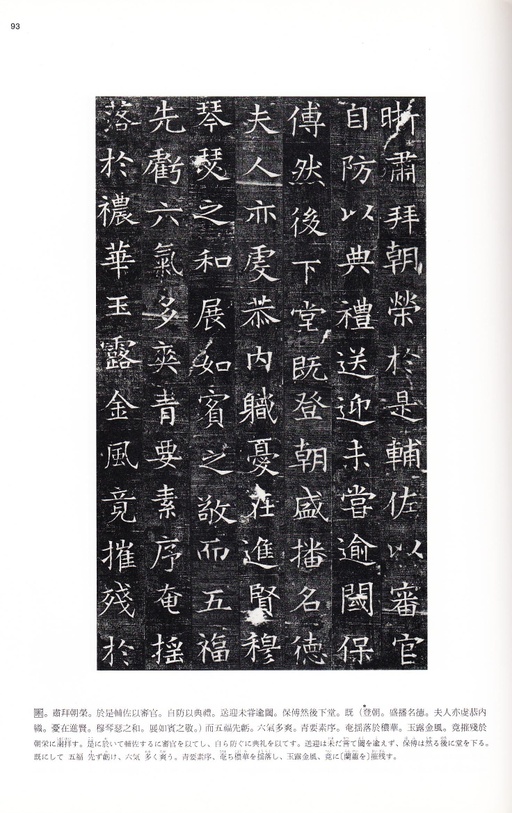 93
晰肅拜朝榮於是輔佐以審官
自防以典禮送迎未嘗逾閾保
傅然後下堂既登朝盛播名德
夫人亦虔恭内職憂在進賢穆
琴瑟之和展如賓之敬而五福
先虧六氣多爽青要素序奄搖
落於禯華玉露金風竟摧殘於
拜朝榮。於是輔佐以審官。自防以典禮。送迎未嘗逾閾。保傅然後下堂。既（登朝。盛播名德。夫人亦虔恭内
職。憂在進賢。穆琴瑟之和。展如賓之敬。）而五福先虧。六氣多爽。青要素序。奄搖落於禯華。玉露金風。竟摧殘於
朝栄に肅拝す。是に於いて輔佐するに審官を以てし、自ら防ぐに典礼を以てす。送迎は未だ嘗て閾を逾えず、保傅は然る後に堂を下る。
既にして 五福 先ず虧け、六気 多く爽う。青要素序、奄ち禯華を揺落し、玉露金風、竟に［蘭蕙を］摧残す。